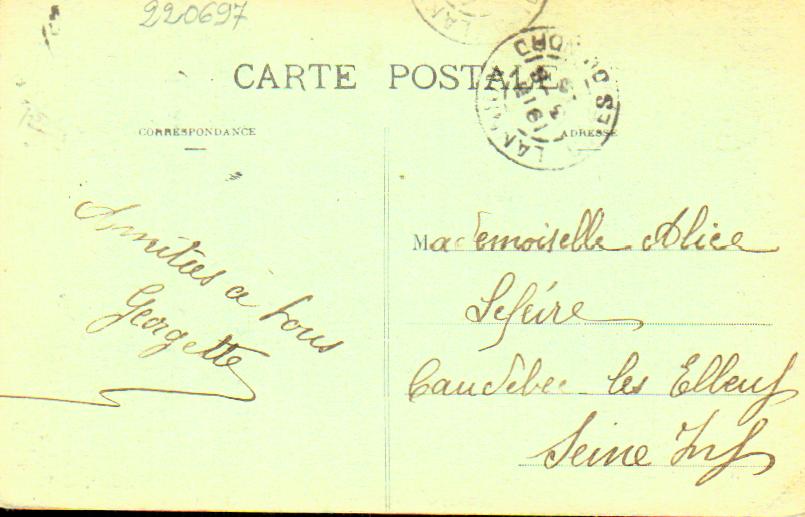 220697
CARTE POSTALE
CORRESPONDANCE
ADRESSE
Amitiés à tous
Georgette
Mademoiselle Alice
Lefèvre
Caudebec les Elbeuf
Seine Inf